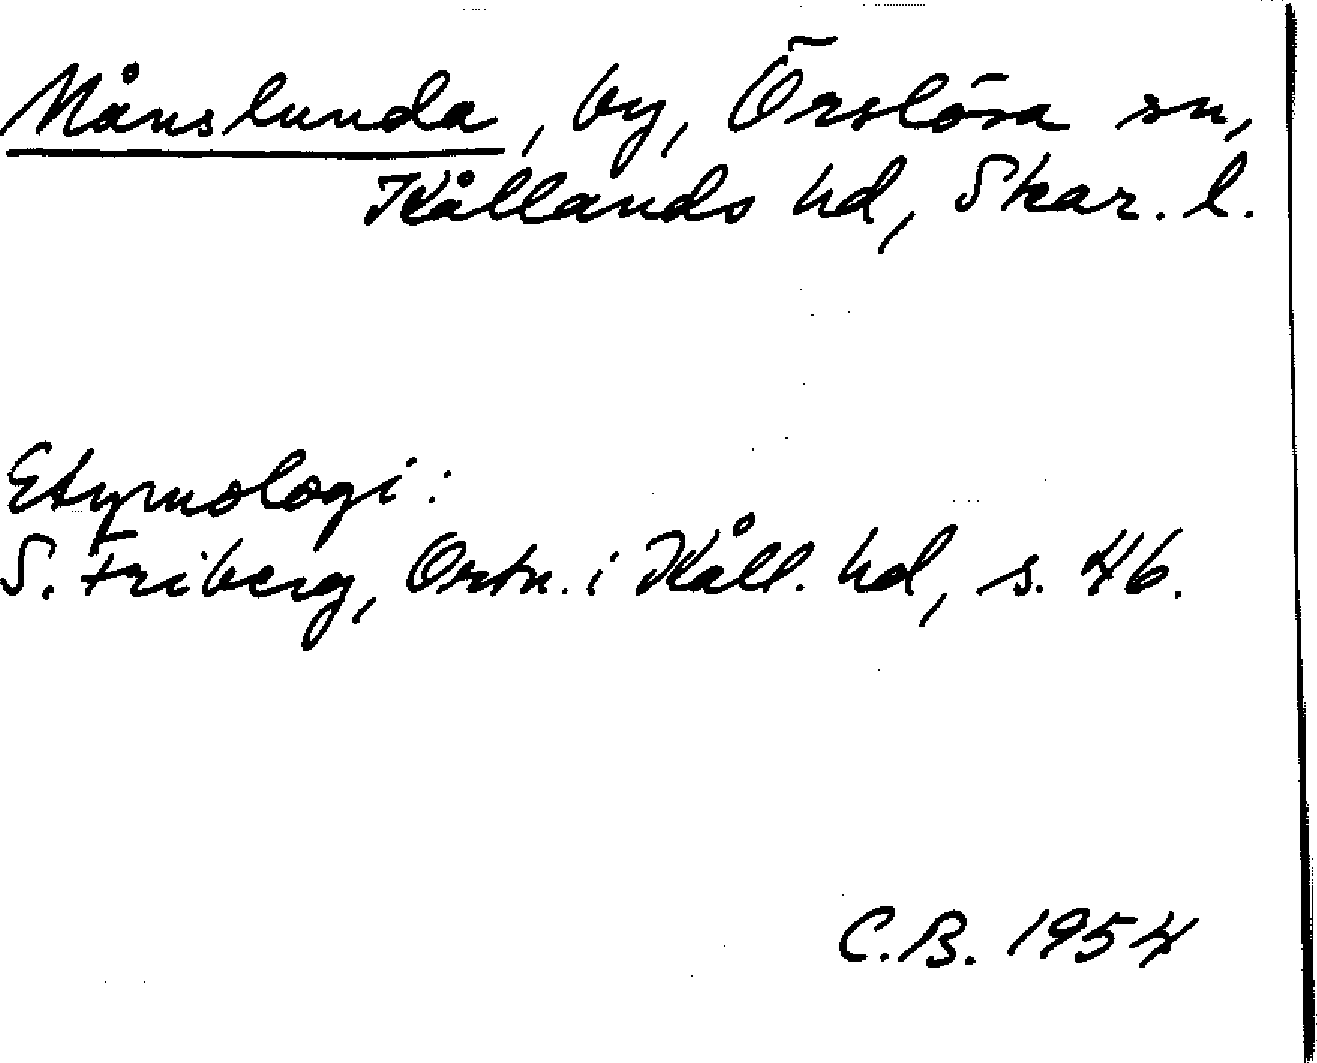 Månslunda, by, Örslösa sn,
Kållands hd, Skar. l.
Etymologi:
S. Friberg, Ortn. i Kåll. hd, s. 46.
C.B. 1954